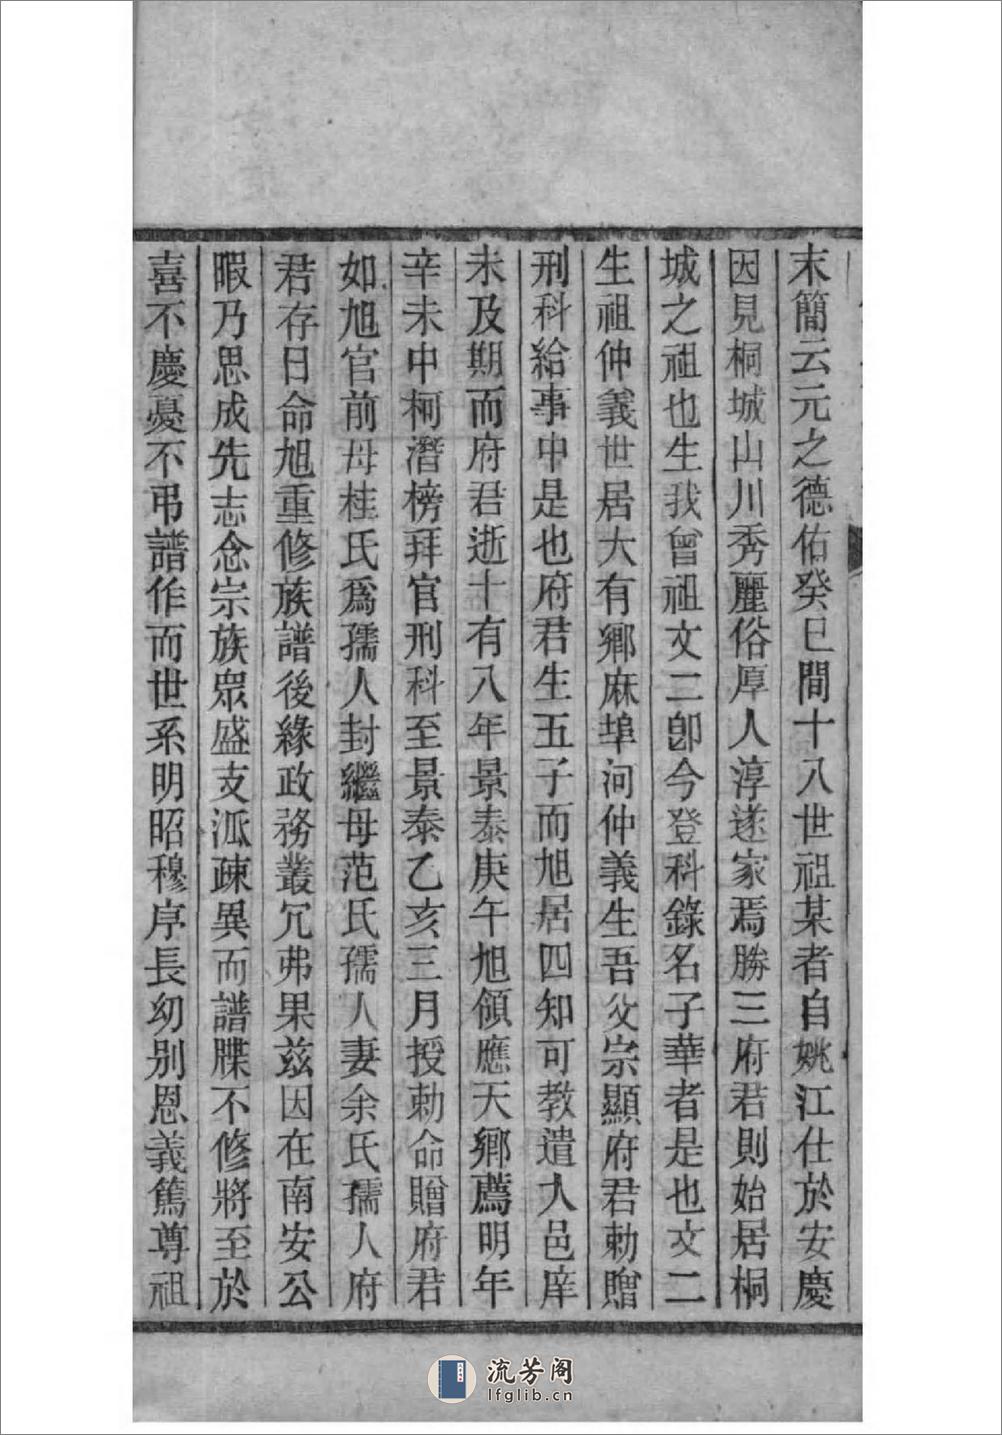 末簡云元之德佑癸巳間十八世祖某者自姚江仕於安慶
因見桐城山川秀麗俗厚人淳遂家焉勝三府君則始居桐
城之祖也生我曾祖文二卽今登科錄名子華者是也文二
生祖仲義世居大有鄉麻埠河仲義生吾父宗顯府君勅贈
刑科給事中是也府君生五子而旭居四知可教遣入邑庠
未及期而府君逝十有八年景泰庚午旭領應天鄉薦明年
辛未中柯潛榜拜官刑科至景泰乙亥三月授勅命贈府君
如旭官前母桂氏爲孺人封繼母范氏孺人妻余氏孺人府
君存日命旭重修族譜後緣政務叢冗弗果茲因在南安公
暇乃思成先志念宗族眾盛支派疎異而譜牒不修將至於
喜不慶憂不弔譜作而世系明昭穆序長幼別恩義篤尊祖
流芳阁
lfglib.cn